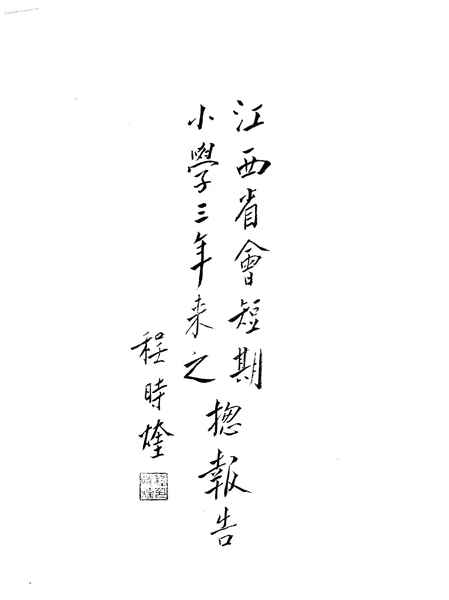 江西省會短期
小學三年来之
揔報告
程時煃